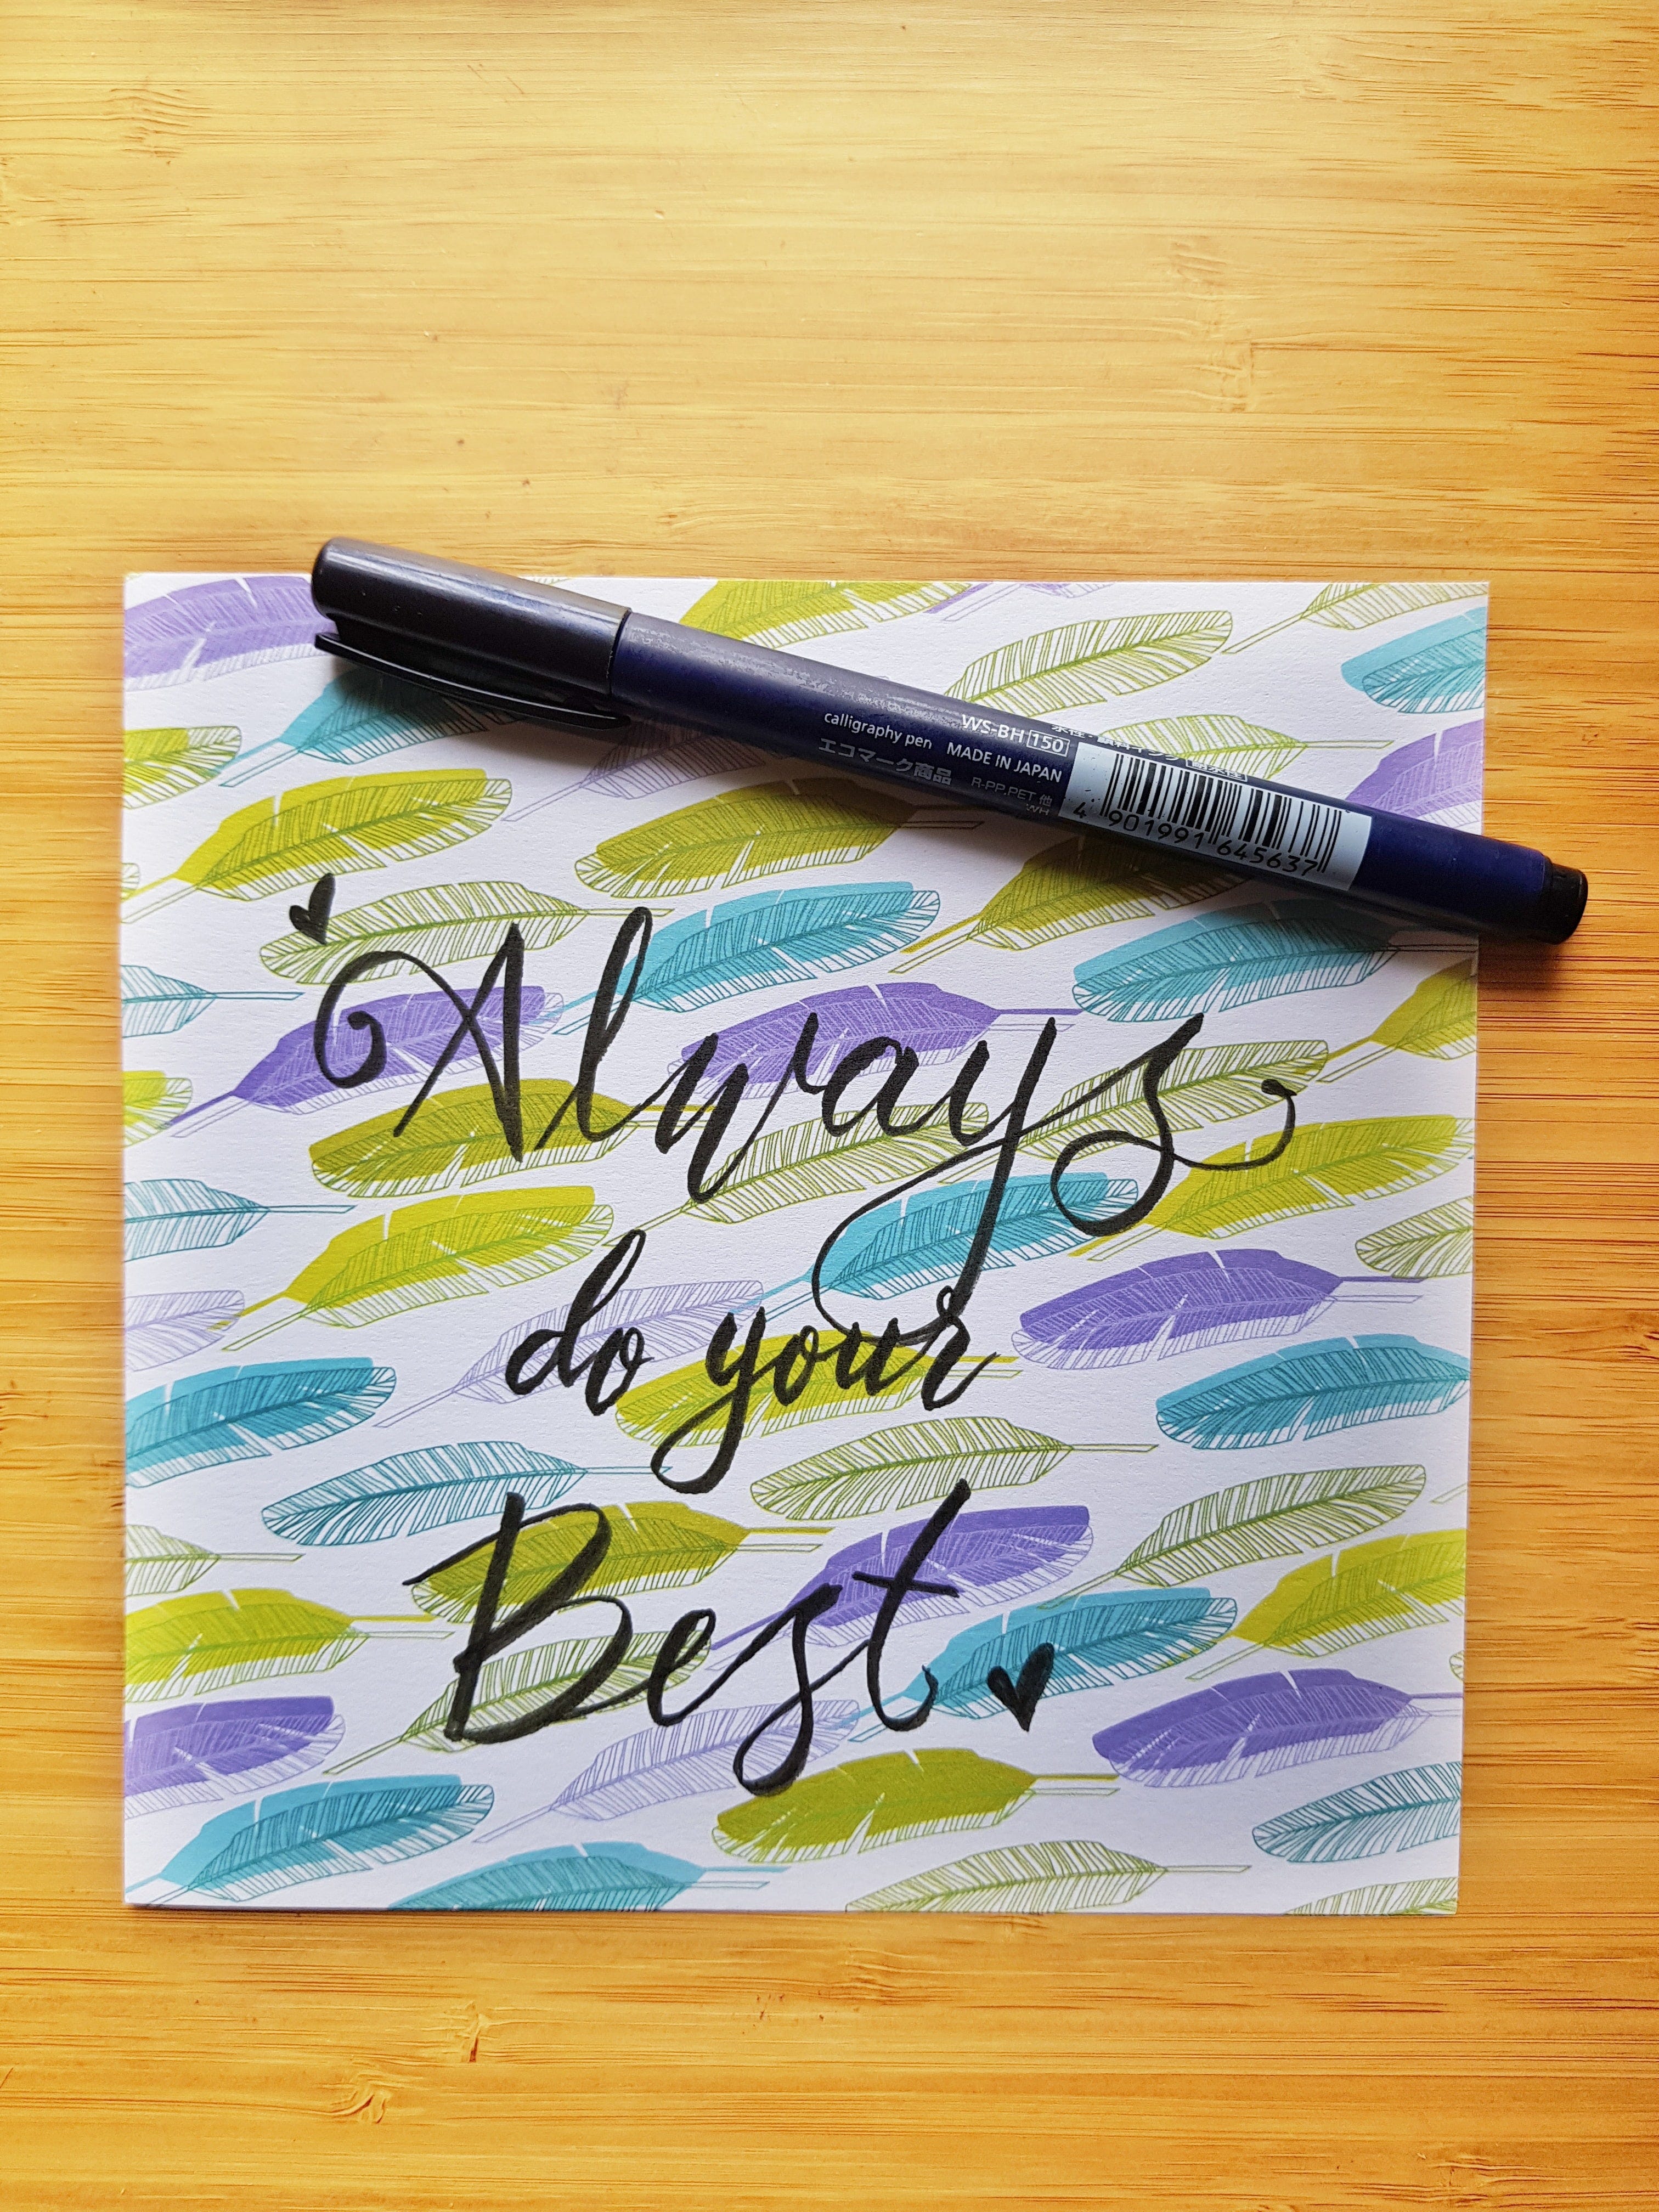 WS-BH 150
calligraphy pen MADE IN JAPAN
エコマーク商品
R-PP.PET 他
WH
4 901991 645637
Always
do your
Best